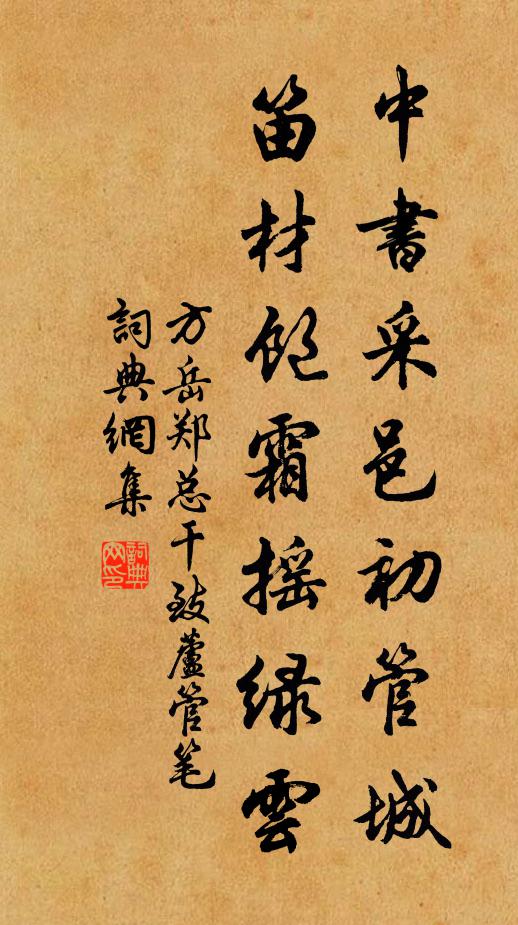 中書采邑初管城
笛材飽霜摇緑雲
方岳郑总干致蘆管笔
詞典網集
詞典网印